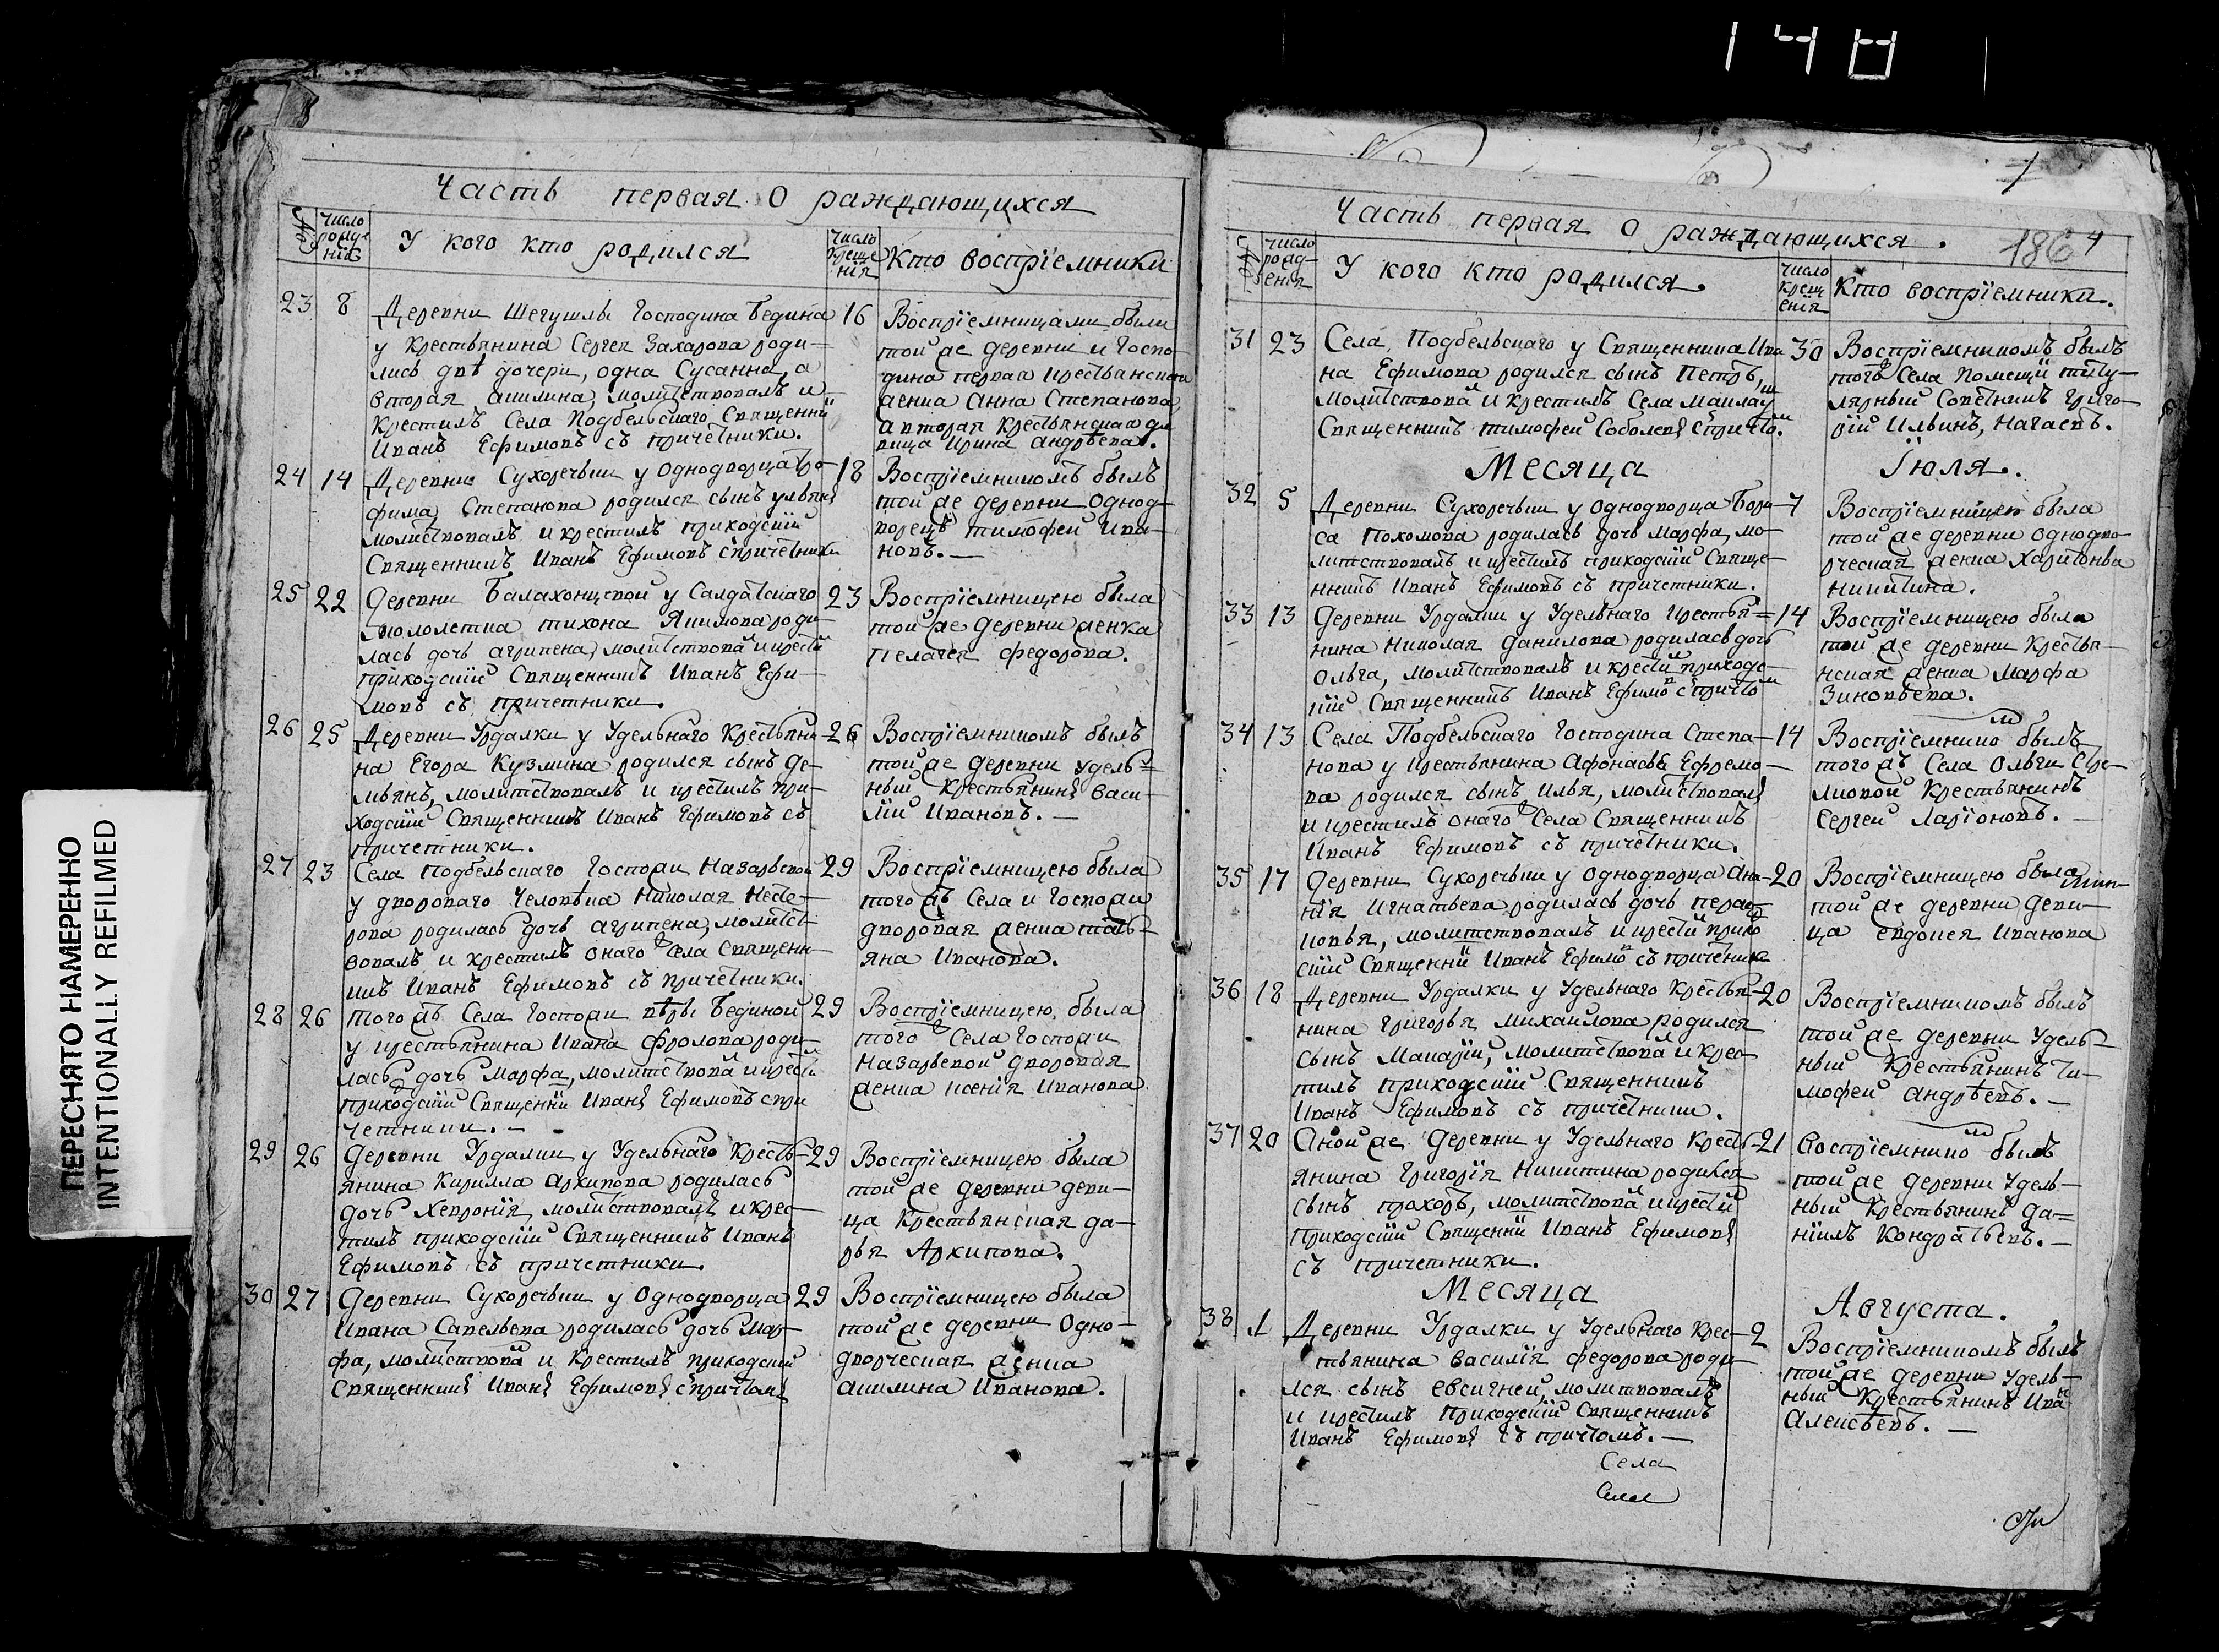 148
ПЕРЕСНЯТО НАМЕРЕННО
INTENTIONALLY REFILMED
Часть первая о раждающихся
№
число рожденiя
У кого кто родился
число крещенiя
Кто воспрiемники
23 8 Деревни Шегушлы Господина Бедина 16
у крестьянина Сергея Захарова роди-
лись двѣ дочери, одна Сусанна, а
вторая акилина, молитствовалъ и
крестилъ Села Подбельскаго Священни
Иванъ Ефимовъ съ причетники.
Воспрiемницами были
той же деревни и Госпо-
дина первая крестьянская
женка Анна Степанова,
а вторая крестьянская дѣ
вица Ирина андрѣева.
24 14 Деревни Сухоречьки у однодворца Тро- 18
фима Степанова родился сынъ ульянъ
молитствовалъ и крестилъ приходскiй
Священникъ Иванъ Ефимовъ с причетники
Воспрiемникомъ былъ
той же деревни однод-
ворецъ тимофей Ива-
новъ. —
25 22 Деревни Балахонцевой у Салдатскаго 23
малолетка тихона Якимова роди-
лась дочь агрипена, молитствова и крести
приходскiй Священникъ Иванъ Ефи-
мовъ съ причетники.
Воспрiемницею была
той же деревни женка
Пелагея федорова.
26 25 Деревни Урдалки у Удельнаго Крестьяни- 26
на Егора Кузмина родился сынъ де-
мьянъ, молитствовалъ и крестилъ при-
ходскiй Священникъ Иванъ Ефимовъ съ
причетники.
Воспрiемникомъ былъ
той же деревни удель=
ный Крестьянинъ Васи-
лiй Ивановъ. —
27 23 Села Подбельскаго Госпожи Назарьевой 29
у двороваго человѣка Николая Несте-
рова родилась дочь агрипена, молитст-
вовалъ и крестилъ онаго Села Священ-
никъ Иванъ Ефимовъ съ причетники.
Воспрiемницею была
того жъ Села и Госпожи
дворовая женка тать-
яна Иванова.
28 26 Того жъ Села Госпожи вѣры Бединой 29
у крестьянина Ивана Фролова роди-
лась дочь Марфа, молитствова и крести
приходскiй Священни Иванъ Ефимовъ с при
четники. —
Воспрiемницею была
того Села Госпожи
Назарьевой дворовая
женка ксенiя Иванова
29 26 Деревни Урдалки у Удельнаго Кресть- 29
янина Кирилла Архипова родилась
дочь Хеврония молитствовалъ и крес-
тилъ приходскiй Священникъ Иванъ
Ефимовъ съ причетники.
Воспрiемницею была
той же деревни деви-
ца Крестьянская да-
рья Архипова.
30 27 Деревни Сухоречьки у Однодворца 29
Ивана Савельева родилась дочь Мар-
фа, молитствова и Крестилъ приходскiй
Священникъ Иванъ Ефимовъ с причтомъ
Воспрiемницею была
той же деревни Одно-
дворческая женка
акилина Иванова.
Часть первая о раждающихся.
186 4
№
число рожденiя
У кого кто родился.
число крещенiя
Кто воспрiемники.
31 23 Села Подбельскаго у Священника Ива 30
на Ефимова родился сынъ Петръ,
молитствова и крестилъ Села
Священникъ тимофей Соболевъ с причто.
Воспрiемникомъ былъ
тогожъ Села Помещи титу-
лярный Советникъ Григо-
рiй Ильинъ, Нагаевъ.
Месяца Iюля.
32 5 Деревни Сухоречьки у Однодворца Бори- 7
са Похомова родилась дочь Марфа, мо-
литствовалъ и крестилъ приходскiй Свяще-
нникъ Иванъ Ефимовъ съ причетники.
Воспрiемницею была
той же деревни однодво-
рческая женка Харитонва
Никитина.
33 13 Деревни Урдалки у Удельнаго крестья= 14
нина Николая данилова родилась дочь
Ольга, молитствовалъ и крести приходс-
кiй Священникъ Иванъ Ефимо с причто
Воспрiемницею была
той же деревни Крестья-
нская женка Марфа
Зиновьева.
34 13 Села Подбельскаго Господина Степа- 14
нова у крестьянина Афонасья Ефремо-
ва родился сынъ илья, молитствовалъ
и крестилъ онаго Села Священникъ
Иванъ Ефимовъ съ причетники.
Воспрiемнико былъ
того жъ Села Ольги
Крестьянинъ
Сергей Ларiоновъ. —
35 17 Деревни Сухоречьки у Однодворца Ана- 20
нiя Игнатьева родилась дочь
молитствовалъ и крести прихо
скiй Священни Иванъ Ефимо съ причетник
Воспрiемницею была
той же деревни деви-
ца евдокея Иванова
36 18 Деревни Урдалки у Удельнаго Крестья- 20
нина григорья михаилова родился
сынъ Макарiй, молитствова и крес-
тилъ приходскiй Священникъ
Иванъ Ефимовъ съ причетники.
Воспрiемникомъ былъ
той же деревни Удель-
ный Крестьянинъ Ти-
мофей андрѣевъ. —
37 20 Оной же Деревни у Удельнаго Кресть- 21
янина Григорiя Никитина родился
сынъ прохоръ, молитствова и крести
приходскiй Священни Иванъ Ефимовъ
съ причетники.
Воспрiемнико былъ
той же деревни Удель-
ный Крестьянинъ да=
нiилъ Кондратьевъ. —
Месяца Августа.
38 1 Деревни Урдалки у Удельнаго Крес- 2
тьянина василiя федорова роди-
лся сынъ евсигней, молитвовалъ
и крестилъ Приходскiй Священникъ
Иванъ Ефимовъ съ причтомъ. —
Воспрiемникомъ былъ
той же деревни удель-
ный Крестьянинъ Ива
Алексѣевъ. —
Села